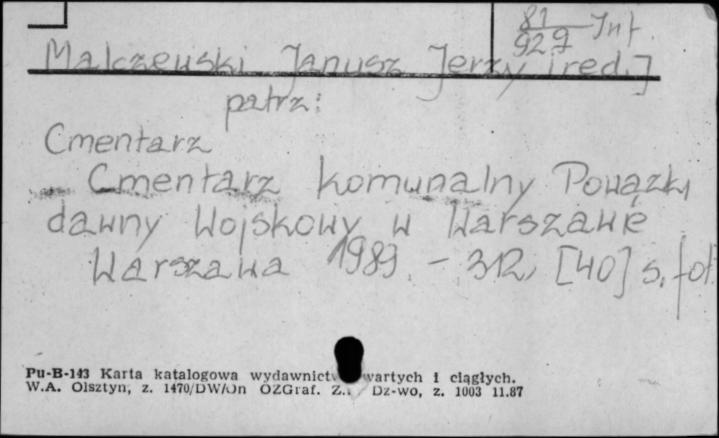 81 Inf.
929
Malczewski Janusz Jerzy [red.]
patrz:
Cmentarz
Cmentarz komunalny Powązki
dawny Wojskowy w Warszawie
Warszawa 1989. – 312, [40] s. fot.
Pu-B-143 Karta katalogowa wydawnictw wartych i ciągłych.
W.A. Olsztyn, z. 1470/DW/On OZGraf. Z. Dz-wo, z. 1003 11.87